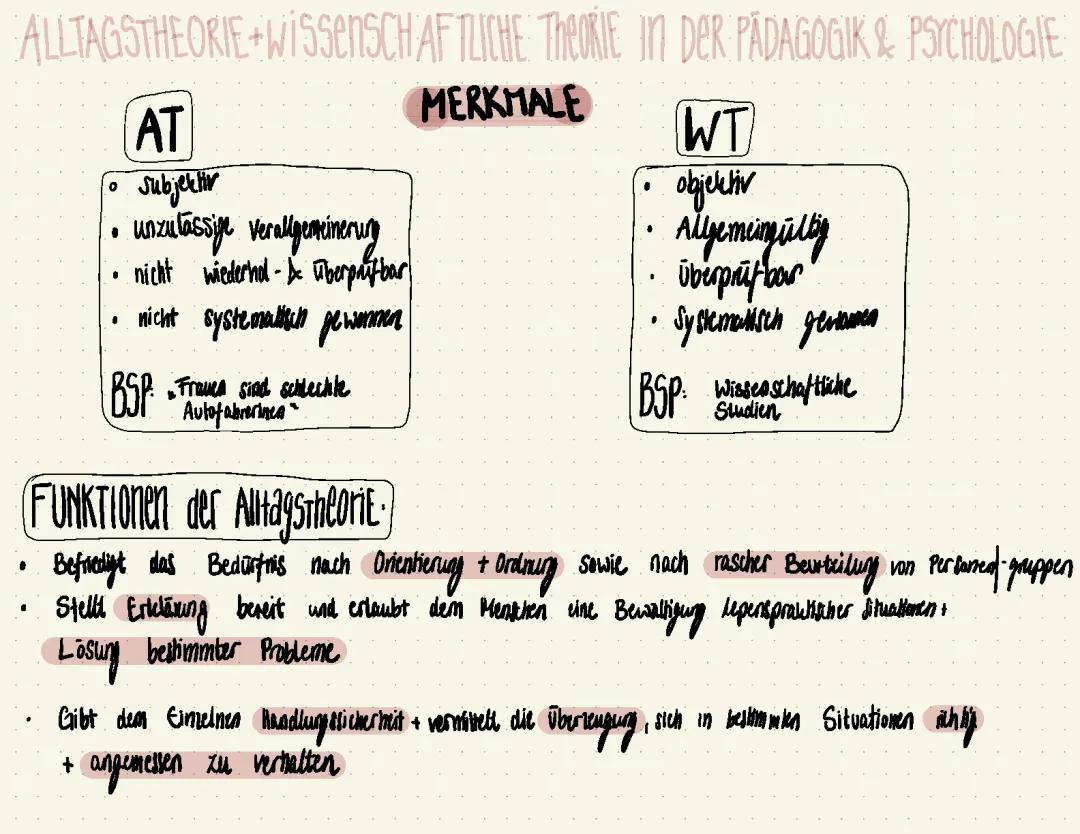 ALLTAGSTHEORIE+WISSENSCHAFTLICHE THEORIE IN DER PÄDAGOGIK & PSYCHOLOGIE
MERKMALE
AT
• subjektiv
• unzulässige Verallgemeinerung
• nicht wiederhol- & überprüfbar
• nicht systematisch gewonnen
BSP: „Frauen sind schlechte
Autofahrerinnen“
WT
• objektiv
• Allgemeingültig
• überprüfbar
• systematisch gewonnen
BSP: Wissenschaftliche
Studien
FUNKTIONEN der Alltagstheorie:
• Befriedigt das Bedürfnis nach Orientierung + Ordnung sowie nach rascher Beurteilung von Personen/-gruppen
• Stellt Erklärung bereit und erlaubt dem Menschen eine Bewältigung lebenspraktischer Situationen +
Lösung bestimmter Probleme
• Gibt dem Einzelnen Handlungssicherheit + vermittelt die Überzeugung, sich in bestimmten Situationen richtig
+ angemessen zu verhalten